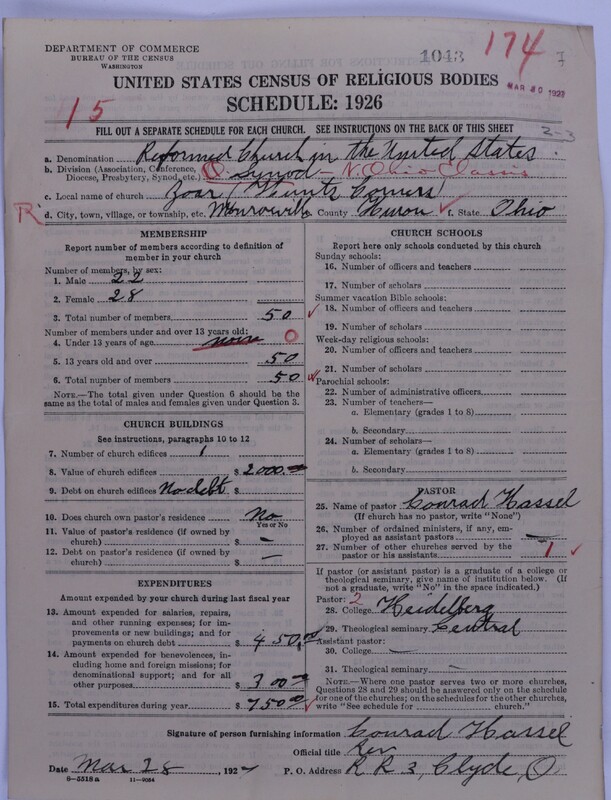 DEPARTMENT OF COMMERCE
BUREAU OF THE CENSUS
WASHINGTON
1043
174
7
MAR 30 1927
UNITED STATES CENSUS OF RELIGIOUS BODIES
SCHEDULE: 1926
15
FILL OUT A SEPARATE SCHEDULE FOR EACH CHURCH. SEE INSTRUCTIONS ON THE BACK OF THIS SHEET
2-3
a. Denomination Reformed Church in the United States
b. Division (Association, Conference, Diocese, Presbytery, Synod, etc.) O. Synod - N. Ohio Classis
c. Local name of church Zoar (Stuntz Corners)
R
d. City, town, village, or township, etc. Monroeville e. County Huron f. State Ohio
MEMBERSHIP
Report number of members according to definition of
member in your church
Number of members, by sex:
1. Male 22
2. Female 28
3. Total number of members 50
Number of members under and over 13 years old:
4. Under 13 years of age none 0
5. 13 years old and over 50
6. Total number of members 50
NOTE.—The total given under Question 6 should be
same as the total of males and females given under Question 3.
CHURCH BUILDINGS
See instructions, paragraphs 10 to 12
7. Number of church edifices 1
8. Value of church edifices $ 2000.00
9. Debt on church edifices No debt $
10. Does church own pastor's residence No
Yes or No
11. Value of pastor's residence (if owned by
church) $ —
12. Debt on pastor's residence (if owned by
church) $ —
EXPENDITURES
Amount expended by your church during last fiscal year
13. Amount expended for salaries, repairs,
and other running expenses; for im-
provements or new buildings; and for
payments on church debt $ 450.00
14. Amount expended for benevolences, in-
cluding home and foreign missions; for
denominational support; and for all
other purposes $ 300.00
15. Total expenditures during year $ 750.00
CHURCH SCHOOLS
Report here only schools conducted by this church
Sunday schools:
16. Number of officers and teachers
17. Number of scholars
Summer vacation Bible schools:
18. Number of officers and teachers
19. Number of scholars
Week-day religious schools:
20. Number of officers and teachers
21. Number of scholars
Parochial schools:
22. Number of administrative officers
23. Number of teachers—
a. Elementary (grades 1 to 8)
b. Secondary
24. Number of scholars—
a. Elementary (grades 1 to 8)
b. Secondary
PASTOR
25. Name of pastor Conrad Hassel
(If church has no pastor, write "None")
26. Number of ordained ministers, if any, em-
ployed as assistant pastors —
27. Number of other churches served by the
pastor or his assistants 1
If pastor (or assistant pastor) is a graduate of a college or
theological seminary, give name of institution below. (If
not a graduate, write "No" in the space indicated.)
Pastor: 2
28. College Heidelberg
29. Theological seminary Central
Assistant pastor:
30. College —
31. Theological seminary —
NOTE.—Where one pastor serves two or more churches,
Questions 28 and 29 should be answered only on the schedule
for one of the churches; on the schedules for the other churches,
write "See schedule for church."
Signature of person furnishing information Conrad Hassel
Official title Rev
Date Mar 28, 1927 P. O. Address R R 3, Clyde, O
8-5518a 11-9054